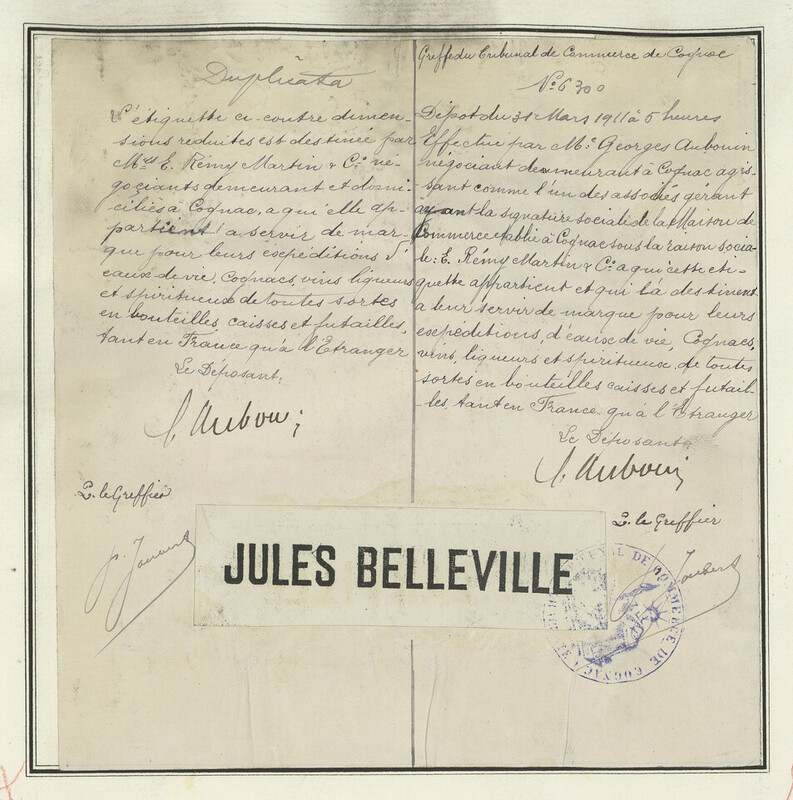 Duplicata
L'étiquette ci-contre dimen-
sions réduites est destinée par
Mrs E. Rémy Martin & Cie né-
gociants demeurant et domi-
ciliés à Cognac, a qui elle ap-
partient a servir de mar-
que pour leurs expéditions d'
eaux-de-vie, Cognacs, vins liqueurs
et spiritueux de toutes sortes
en bouteilles, caisses et futailles,
tant en France qu'à l'Etranger
Le Déposant,
G. Aubouin
P. le Greffier
Greffe du Tribunal de Commerce de Cognac
No 6300
Dépot du 31 Mars 1911 à 5 heures
Effectué par Mr Georges Aubouin
négociant demeurant à Cognac agis-
sant comme l'un des associés gérant
ayant la signature sociale de la Maison de
Commerce etablie à Cognac sous la raison socia-
le: E. Rémy Martin & Cie a qui cette éti-
quette appartient et qui l'a destinent
a leur servir de marque pour leurs
expéditions, d'eaux de vie, Cognacs,
vins, liqueurs et spiritueux, de toutes
sortes en bouteilles caisses et futail-
les, tant en France qu'à l'Etranger
Le Déposant
G. Aubouin
P. le Greffier
Joubert
JULES BELLEVILLE
TRIBUNAL DE COMMERCE DE COGNAC